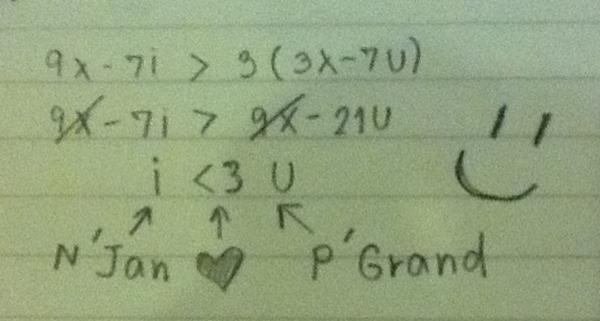 9x - 7i > 3 (3x - 7U)
9x - 7i > 9x - 21U
i <3 U
N'Jan ♥ P'Grand